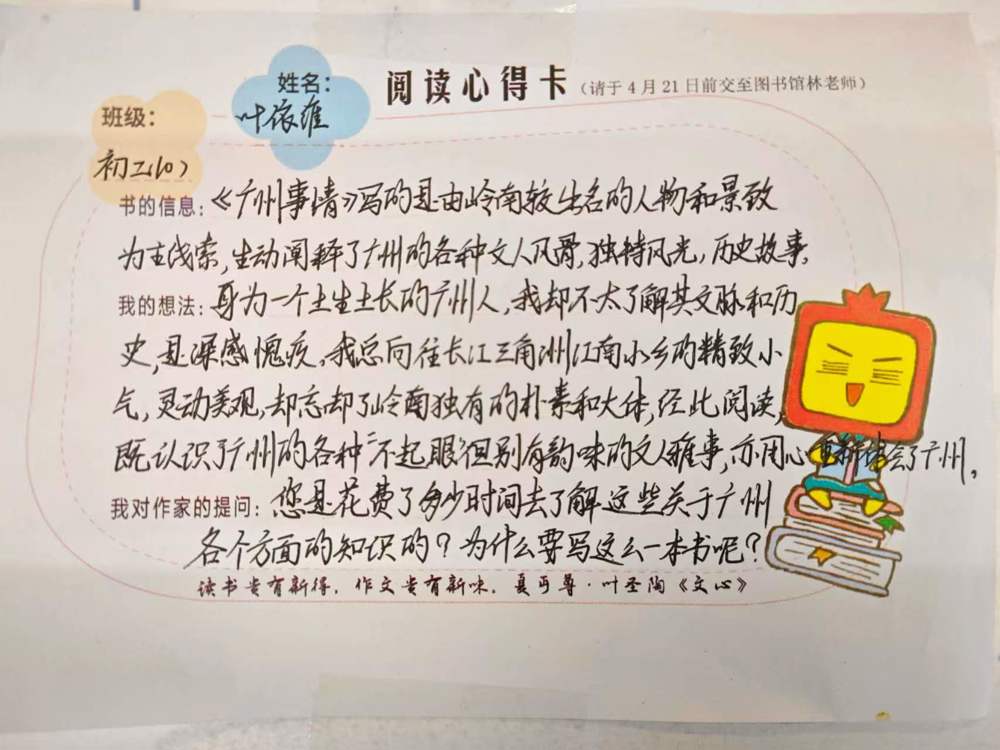 阅读心得卡（请于4月21日前交至图书馆林老师）
姓名：
叶依维
班级：
初二(10)
书的信息：《广州事情》写的是由岭南较出名的人物和景致
为主线索,生动阐释了广州的各种文人风骨,独特风光,历史故事.
我的想法：身为一个土生土长的广州人,我却不太了解其文脉和历
史,是深感愧疚.我总向往长江三角洲江南小乡的精致小
气,灵动美观,却忘却了岭南独有的朴素和大体,经此阅读,
既认识了广州的各种"不起眼"但别有韵味的文人雅事,亦用心重新体会了广州.
我对作家的提问：您是花费了多少时间去了解这些关于广州
各个方面的知识的？为什么要写这么一本书呢？
读书贵有新得，作文贵有新味。夏丏尊·叶圣陶《文心》